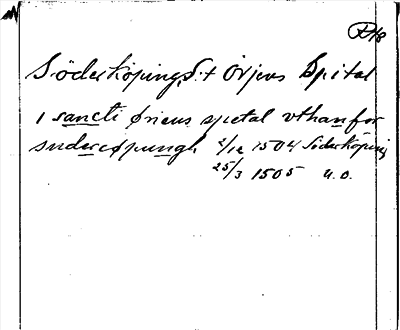 D18
Söderköping, S:t Örjens Spital
i sancti øriens spetal vthanfor
suderøpungh 2/12 1504 Söderköping
25/3 1505 u.o.